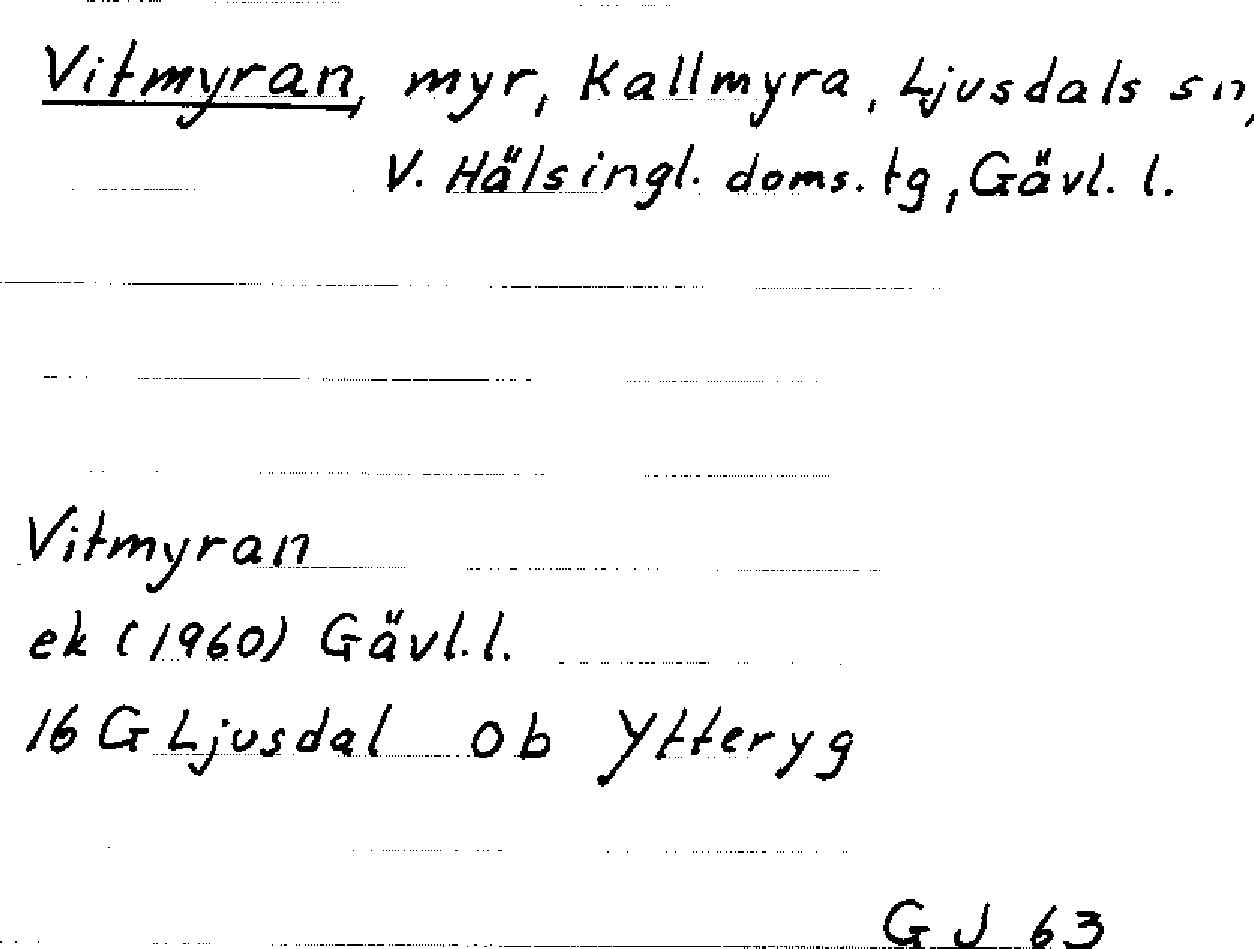 Vitmyran, myr, Kallmyra, Ljusdals sn,
V. Hälsingl. doms. tg, Gävl. l.
Vitmyran
ek (1960) Gävl. l.
16 G Ljusdal 0 b Ytteryg
G J 63